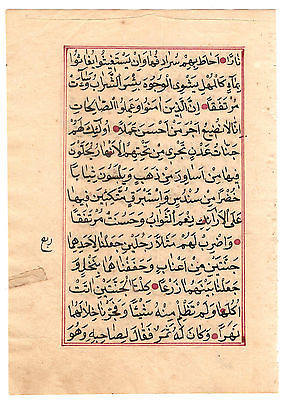 نارًا احاط بهم سرادقها وان يستغيثوا يغاثوا
بماء كالمهل يشوى الوجوه بئس الشراب وساءت
مرتفقا ان الذين امنوا وعملوا الصالحات
انا لا نضيع اجر من احسن عملا اولئك لهم
جنات عدن تجرى من تحتهم الانهار يحلون
فيها من اساور من ذهب ويلبسون ثيابا
خضرا من سندس واستبرق متكئين فيها
على الارائك نعم الثواب وحسنت مرتفقا
واضرب لهم مثلا رجلين جعلنا لاحدهما
جنتين من اعناب وحففناهما بنخل و
جعلنا بينهما زرعا كلتا الجنتين اتت
اكلها ولم تظلم منه شيئا وفجرنا خلالهما
نهرا وكان له ثمر فقال لصاحبه وهو
ربع